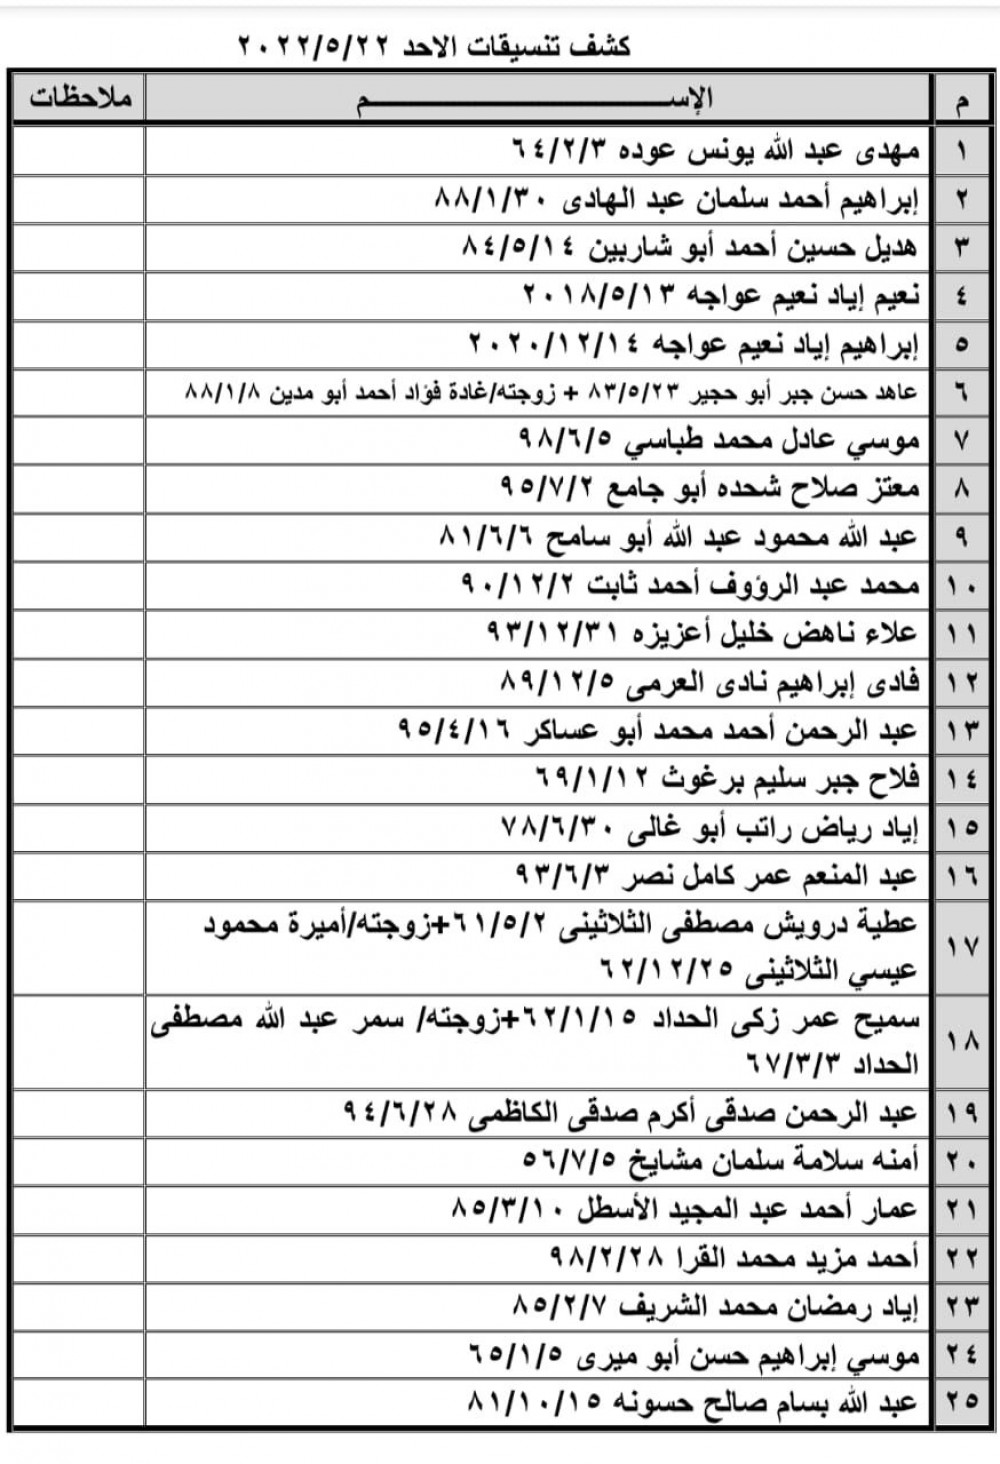 كشف تنسيقات الاحد ٢٠٢٢/٥/٢٢
م الإســـــــــم ملاحظات
١ مهدى عبد الله يونس عوده ٦٤/٢/٣
٢ إبراهيم أحمد سلمان عبد الهادى ٨٨/١/٣٠
٣ هديل حسين أحمد أبو شاربين ٨٤/٥/١٤
٤ نعيم إياد نعيم عواجه ٢٠١٨/٥/١٣
٥ إبراهيم إياد نعيم عواجه ٢٠٢٠/١٢/١٤
٦ عاهد حسن جبر أبو حجير ٨٣/٥/٢٣ + زوجته/غادة فؤاد أحمد أبو مدين ٨٨/١/٨
٧ موسي عادل محمد طباسي ٩٨/٦/٥
٨ معتز صلاح شحده أبو جامع ٩٥/٧/٢
٩ عبد الله محمود عبد الله أبو سامح ٨١/٦/٦
١٠ محمد عبد الرؤوف أحمد ثابت ٩٠/١٢/٢
١١ علاء ناهض خليل أعزيزه ٩٣/١٢/٣١
١٢ فادى إبراهيم نادى العرمى ٨٩/١٢/٥
١٣ عبد الرحمن أحمد محمد أبو عساكر ٩٥/٤/١٦
١٤ فلاح جبر سليم برغوث ٦٩/١/١٢
١٥ إياد رياض راتب أبو غالى ٧٨/٦/٣٠
١٦ عبد المنعم عمر كامل نصر ٩٣/٦/٣
١٧ عطية درويش مصطفى الثلاثينى ٦١/٥/٢+زوجته/أميرة محمود
عيسي الثلاثينى ٦٢/١٢/٢٥
١٨ سميح عمر زكى الحداد ٦٢/١/١٥+زوجته/ سمر عبد الله مصطفى
الحداد ٦٧/٣/٣
١٩ عبد الرحمن صدقى أكرم صدقى الكاظمى ٩٤/٦/٢٨
٢٠ أمنه سلامة سلمان مشايخ ٥٦/٧/٥
٢١ عمار أحمد عبد المجيد الأسطل ٨٥/٣/١٠
٢٢ أحمد مزيد محمد القرا ٩٨/٢/٢٨
٢٣ إياد رمضان محمد الشريف ٨٥/٢/٧
٢٤ موسي إبراهيم حسن أبو ميرى ٦٥/١/٥
٢٥ عبد الله بسام صالح حسونه ٨١/١٠/١٥